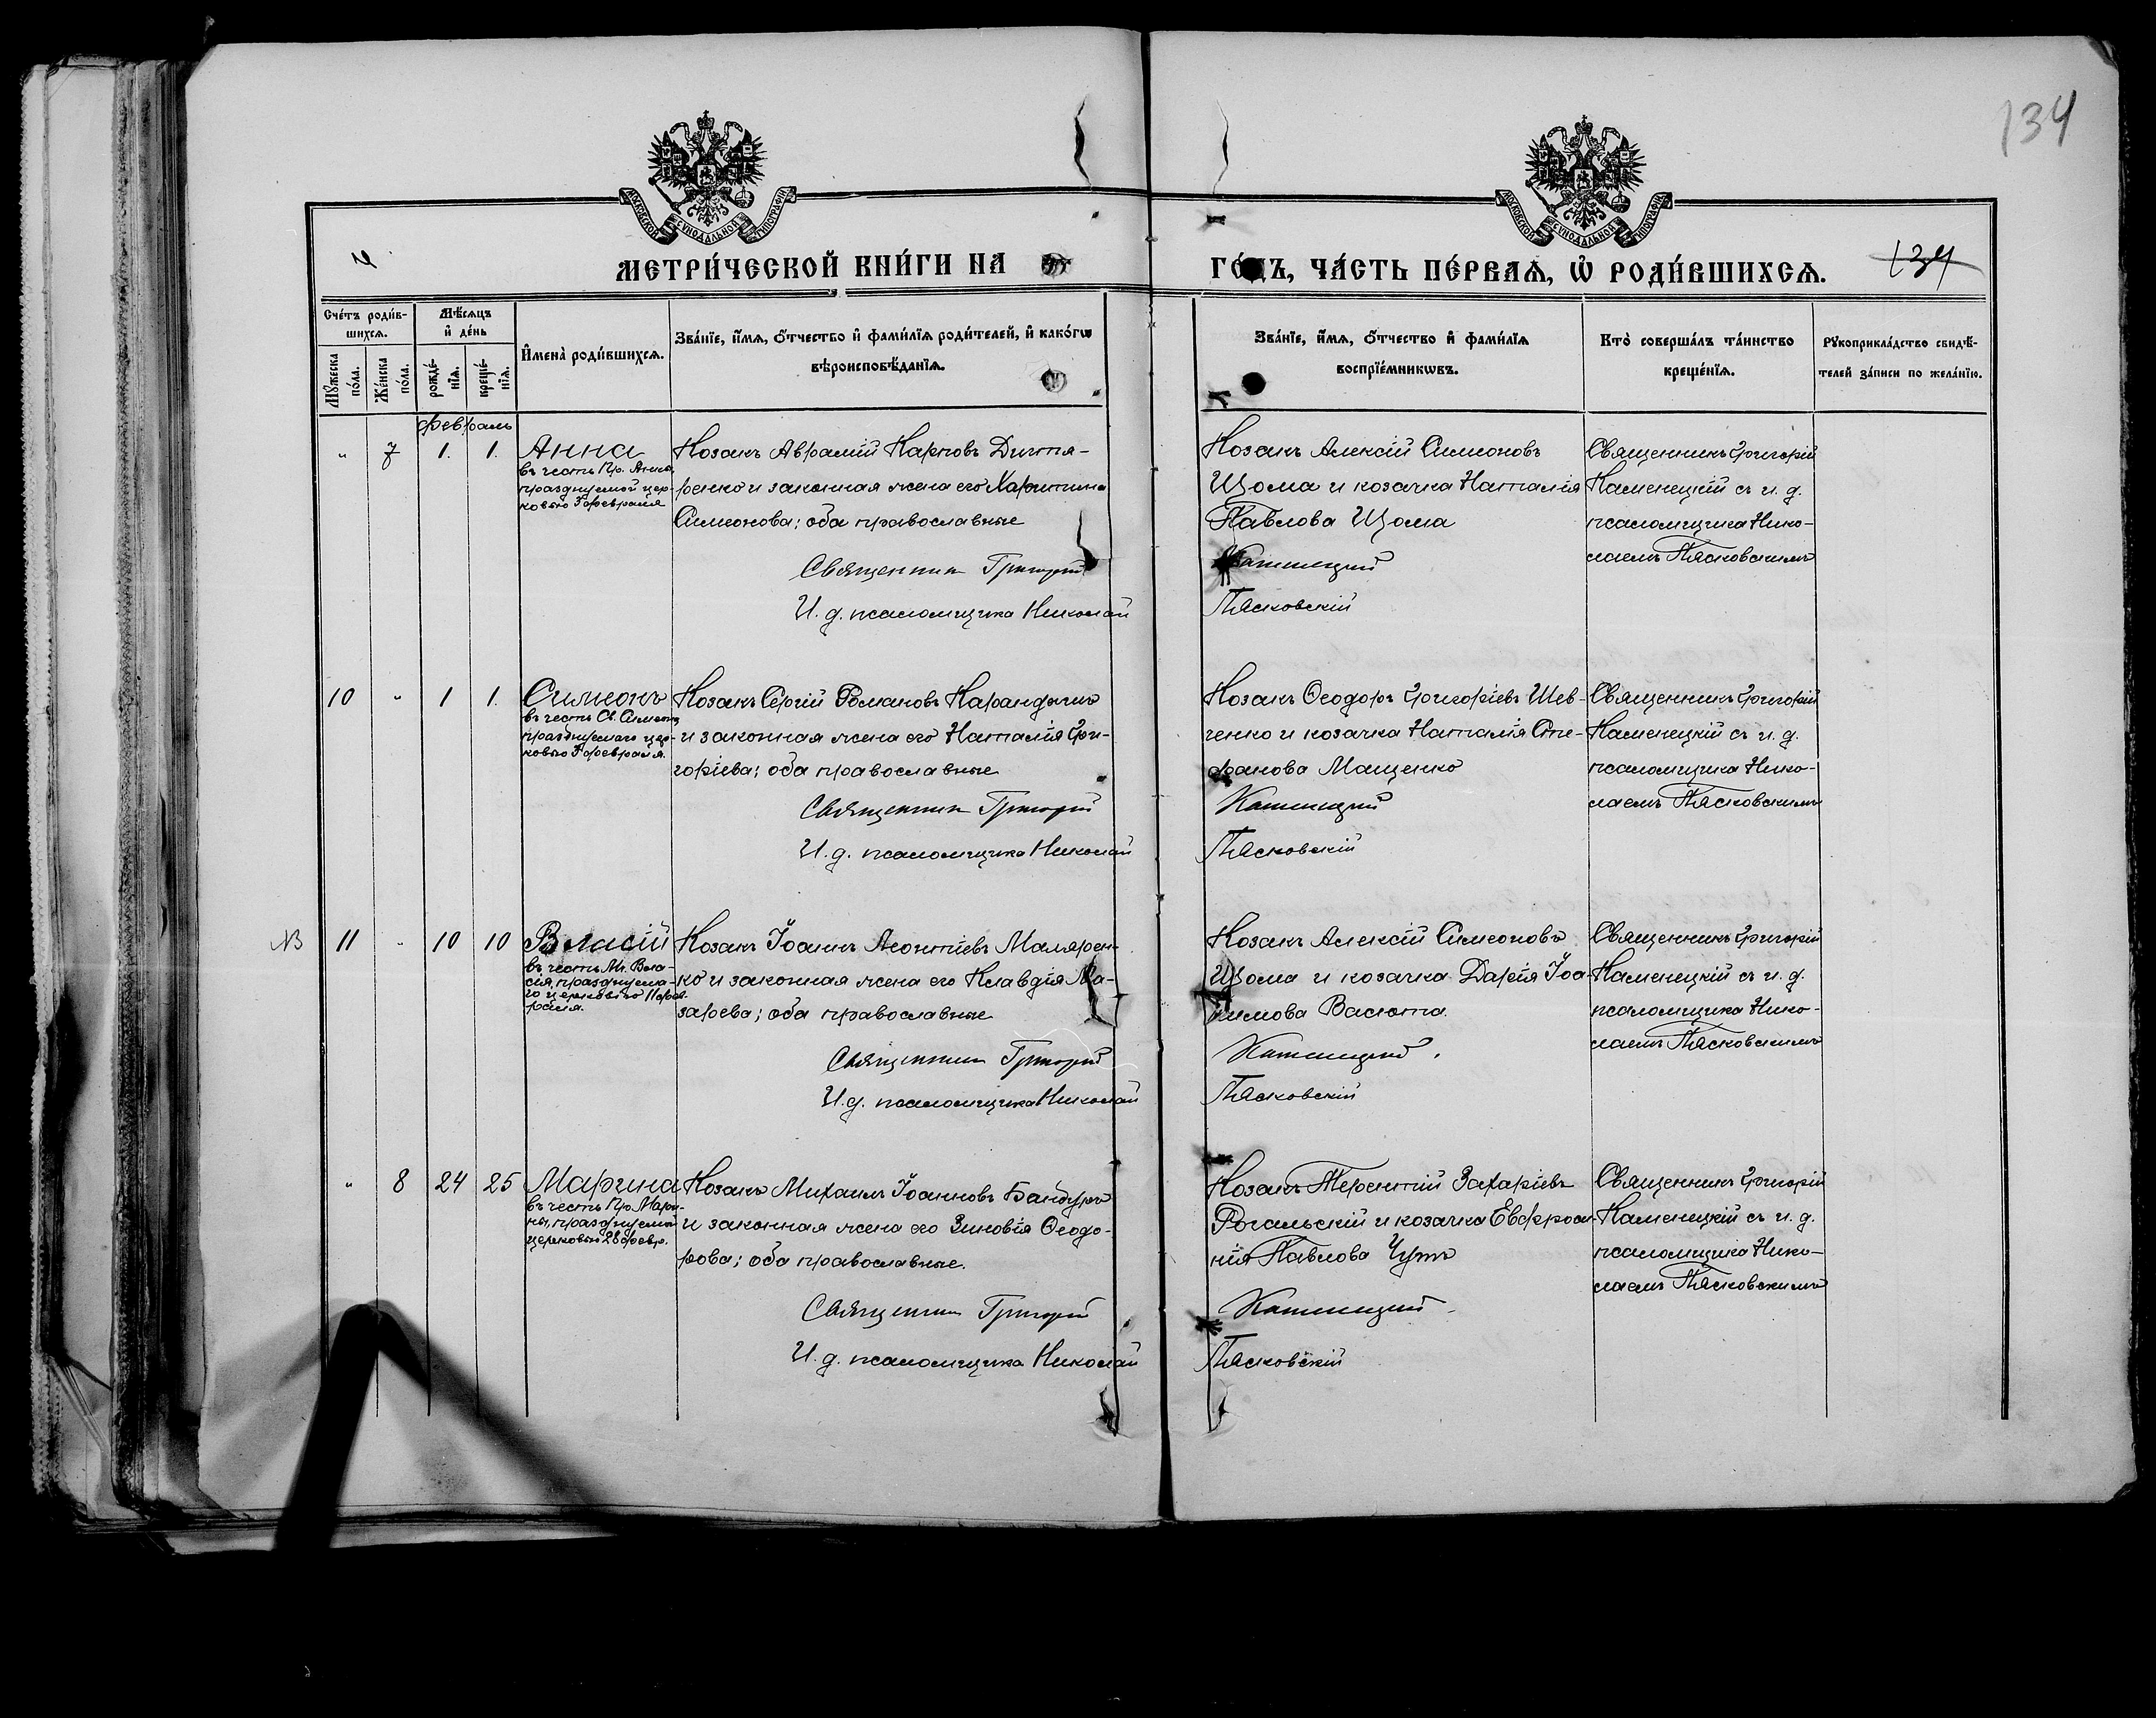 134
МОСКОВСКОЙ СУНОДАЛЬНОЙ ТИПОГРАФІИ
МОСКОВСКОЙ СУНОДАЛЬНОЙ ТИПОГРАФІИ
МЕТРИ́ЧЕСКОЙ КНИ́ГИ НА
ГО́ДЪ, ЧА́СТЬ ПЕ́РВАѦ, Ѡ҆ РОДИ́ВШИХСѦ.
134
Сче́тъ роди́в-
шихсѧ.
Мѣ́сѧцъ
и҆ де́нь
И҆мена̀ роди́вшихсѧ.
Зва́нїе, и҆́мѧ, ѻ҆́тчество и҆ фами́лїѧ роди́телей, и҆ како́гѡ
вѣроисповѣ́данїѧ.
Зва́нїе, и҆́мѧ, ѻ҆́тчество и҆ фами́лїѧ
воспрїе́мникѡвъ.
Кто̀ соверша́лъ та́инство
креще́нїѧ.
Рꙋкоприкла́дство свидѣ́-
телей за́писи по жела́нїю.
Мꙋ́жеска
по́ла.
Же́нска
по́ла.
рожде́-
нїѧ.
креще́-
нїѧ.
Февраль
" 7 1. 1. Анна
въ честь Пр. Анны,
празднуемой цер-
ковью 3 февраля
Козакъ Аврамій Карповъ Дигтя-
ренко и законная жена его Харитина
Симеонова; оба православные
Священник Григорий
И. д. псаломщика Николай
Козакъ Алексій Симеоновъ
Щома и козачка Наталія
Павлова Щома
Каменецкий
Пясковскій
Священникъ Григорій
Каменецкій съ и. д.
псаломщика Нико-
лаемъ Пясковскимъ
10 " 1 1. Симеонъ
въ честь Св. Симеона,
празднуемаго цер-
ковью 3 февраля.
Козакъ Сергій Романовъ Карандашъ
и законная жена его Наталія Гри-
горіева; оба православные
Священник Григорий
И. д. псаломщика Николай
Козакъ Ѳеодоръ Григоріевъ Шев-
ченко и козачка Наталія Сте-
фанова Мащенко
Каменецкий
Пясковскій
Священникъ Григорій
Каменецкій съ и. д.
псаломщика Нико-
лаемъ Пясковскимъ
NB 11 " 10 10 Власій
въ честь Мч. Вла-
сія, празднуема-
го церковью 11 фев-
раля.
Козакъ Іоаннъ Леонтіевъ Малярен-
ко и законная жена его Клавдія Ла-
зарева; оба православные
Священник Григорий
И. д. псаломщика Николай
Козакъ Алексій Симеоновъ
Щома и козачка Дарія Іоа-
кимова Васюта.
Каменецкий.
Пясковскій
Священникъ Григорій
Каменецкій съ и. д.
псаломщика Нико-
лаемъ Пясковскимъ
" 8 24 25 Марина
въ честь Пр. Мари-
ны, празднуемой
церковью 28 февр.
Козакъ Михаилъ Іоанновъ Бандуръ
и законная жена его Зиновія Ѳеодо-
рова; оба православные.
Священник Григорий
И. д. псаломщика Николай
Козакъ Терентій Захаріевъ
Рогальскій и козачка Евфроси-
нія Павлова Чупъ
Каменецкий
Пясковскій
Священникъ Григорій
Каменецкій съ и. д.
псаломщика Нико-
лаемъ Пясковскимъ